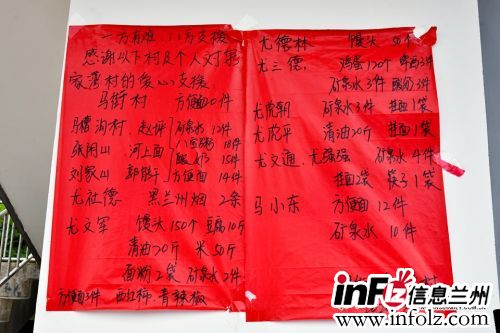 一方有难、八方支援
感谢以下村及个人对张
家湾村的爱心支援
马街村 方便面10件
马槽沟村、赵评 矿泉水 12件
八宝粥 18件
张闲山、河上面 酸奶 15件
刘家山 方便面 14件
尤社德 黑兰州烟 2条
尤文军 馒头150个 豆腐10斤
清油20斤 米50斤
面粉2袋 矿泉水2件
方便面3件 西红柿、青辣椒
尤德林 馒头50个
尤三德 鸡蛋120个 啤酒3件
矿泉水3件 酸奶3件
尤虎朝 矿泉水3件 挂面1袋
尤虎平 清油20斤 挂面1袋
尤文通、尤强强 矿泉水4件
挂面2袋 筷子1袋
马小东 方便面12件
矿泉水10件
inflz信息兰州
www.infolz.com